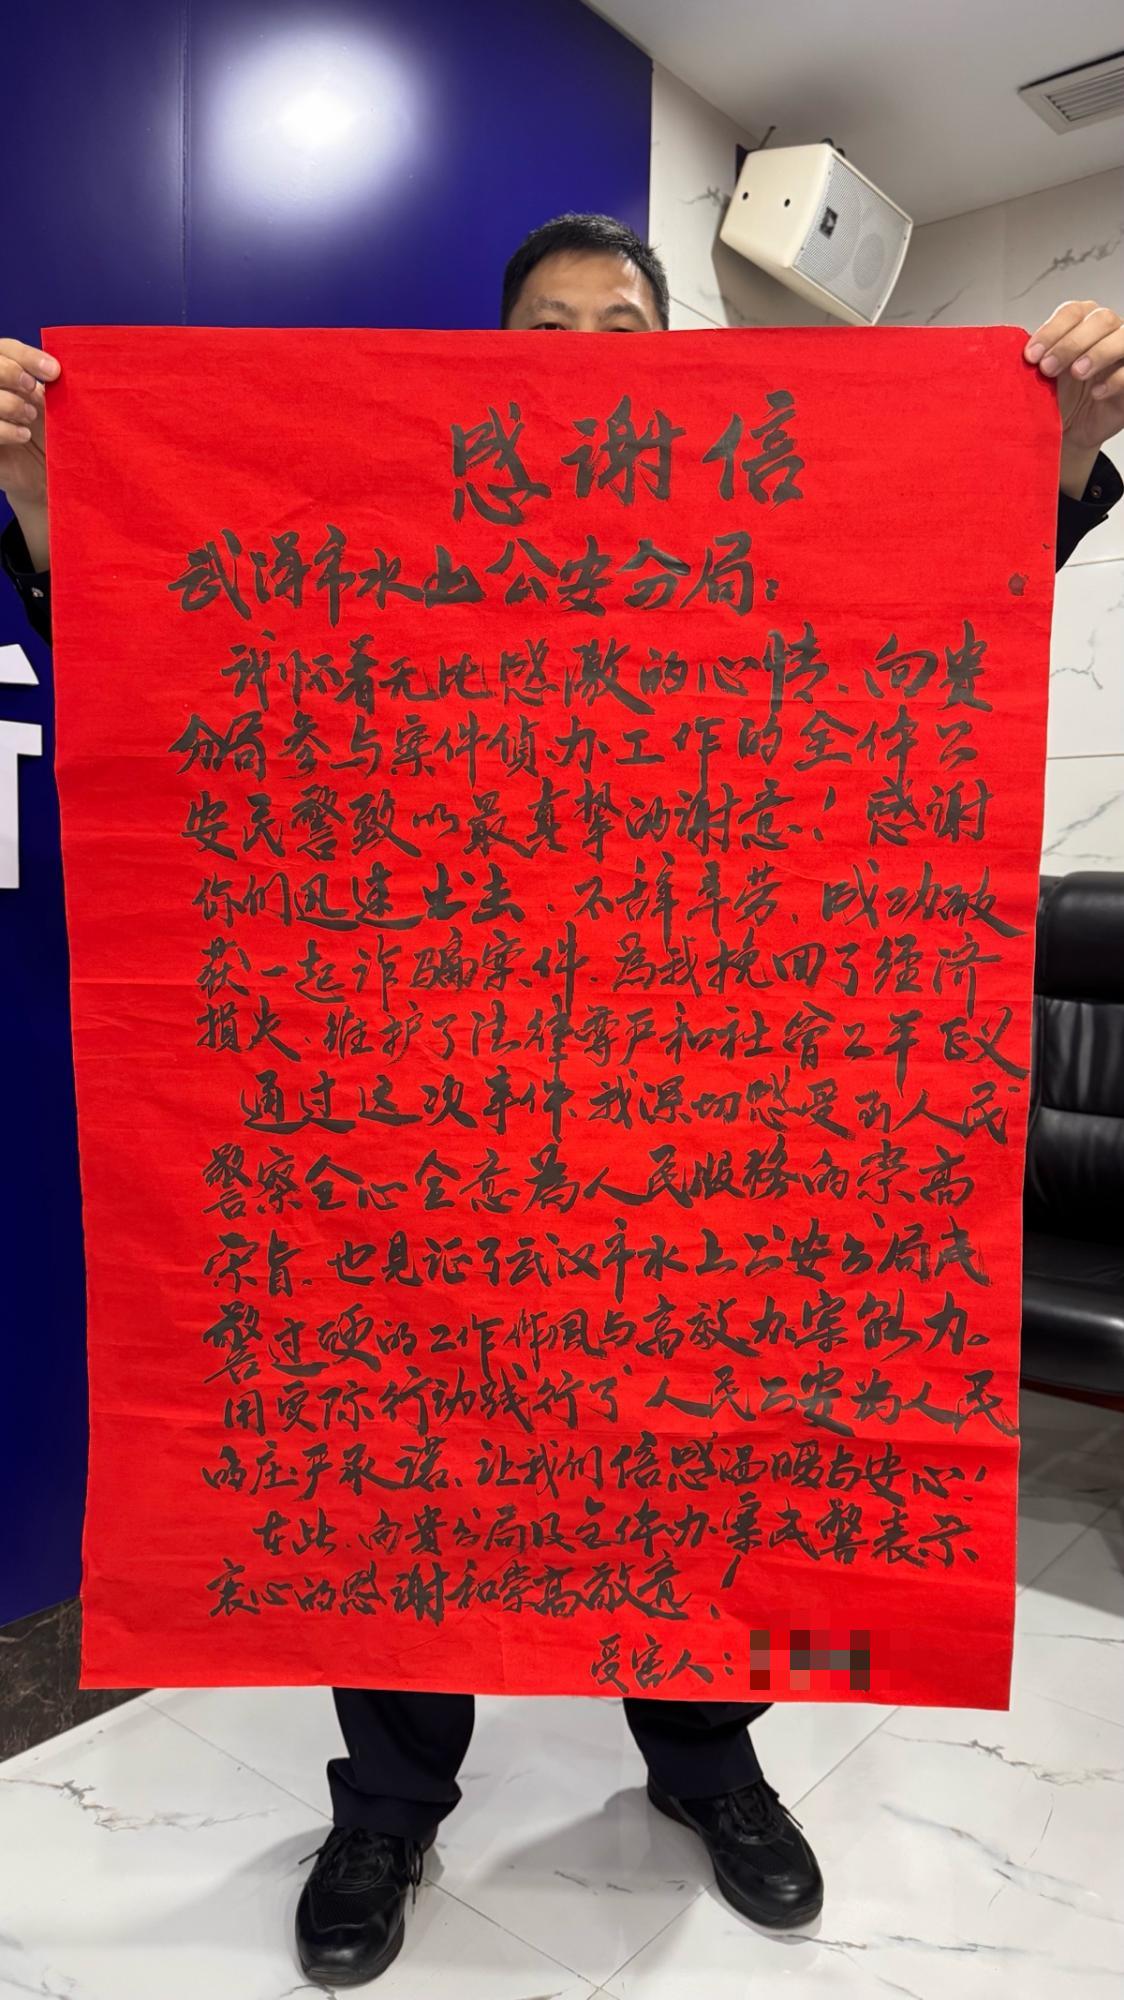 感谢信
武汉市水上公安分局：
我怀着无比感激的心情、向贵
分局参与案件侦办工作的全体公
安民警致以最真挚的谢意！感谢
你们迅速出击、不辞辛劳、成功破
获一起诈骗案件、为我挽回了经济
损失、维护了法律尊严和社会公平正义
通过这次事件、我深切感受到人民
警察全心全意为人民服务的崇高
宗旨、也见证了武汉市水上公安分局民
警过硬的工作作风与高效办案能力。
用实际行动践行了人民公安为人民
的庄严承诺、让我们倍感温暖与安心！
在此、向贵分局及全体办案民警表示
衷心的感谢和崇高敬意！
受害人：